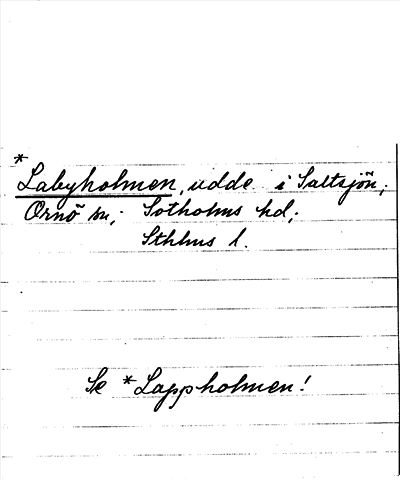 *
Labyholmen, udde i Saltsjön;
Ornö sn; Sotholms hd;
Sthlms l.
Se *Lappholmen!